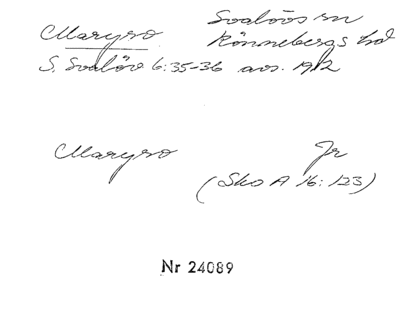 Maryro Svalövs sn
Rönnebergs hd
S. Svalöv 6:35-36 avs. 1912
Maryro Jr
(Sko A 16:123)
Nr 24089